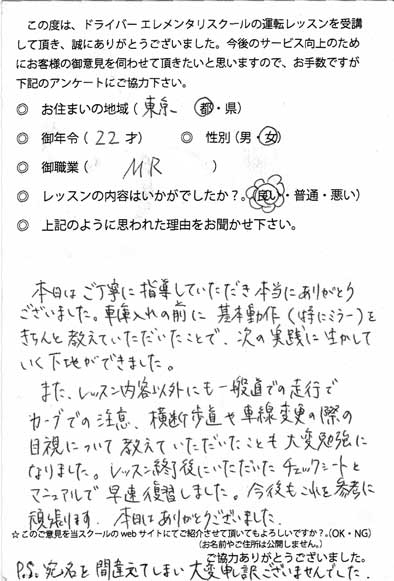 この度は、ドライバー エレメンタリスクールの運転レッスンを受講
して頂き、誠にありがとうございました。今後のサービス向上のため
にお客様の御意見を伺わせて頂きたいと思いますので、お手数ですが
下記のアンケートにご協力下さい。
◎ お住まいの地域（東京 都・県）
◎ 御年令（22才） ◎ 性別（男・女）
◎ 御職業（ MR ）
◎ レッスンの内容はいかがでしたか？。（良い・普通・悪い）
◎ 上記のように思われた理由をお聞かせ下さい。
本日はご丁寧に指導していただき本当にありがとう
ございました。車庫入れの前に基本動作（特にミラー）を
きちんと教えていただいたことで、次の実践に生かして
いく下地ができました。
また、レッスン内容以外にも一般道での走行で
カーブでの注意、横断歩道や車線変更の際の
目視について教えていただいたことも大変勉強に
なりました。レッスン終了後にいただいたチェックシートと
マニュアルで早速復習しました。今後もこれを参考に
頑張ります。本日はありがとうございました。
☆このご意見を当スクールのwebサイトにてご紹介させて頂いてもよろしいですか？。（OK・NG）
（お名前やご住所は公開しません。）
ご協力ありがとうございました。
P.S. 宛名を間違えてしまい大変申し訳ございませんでした。